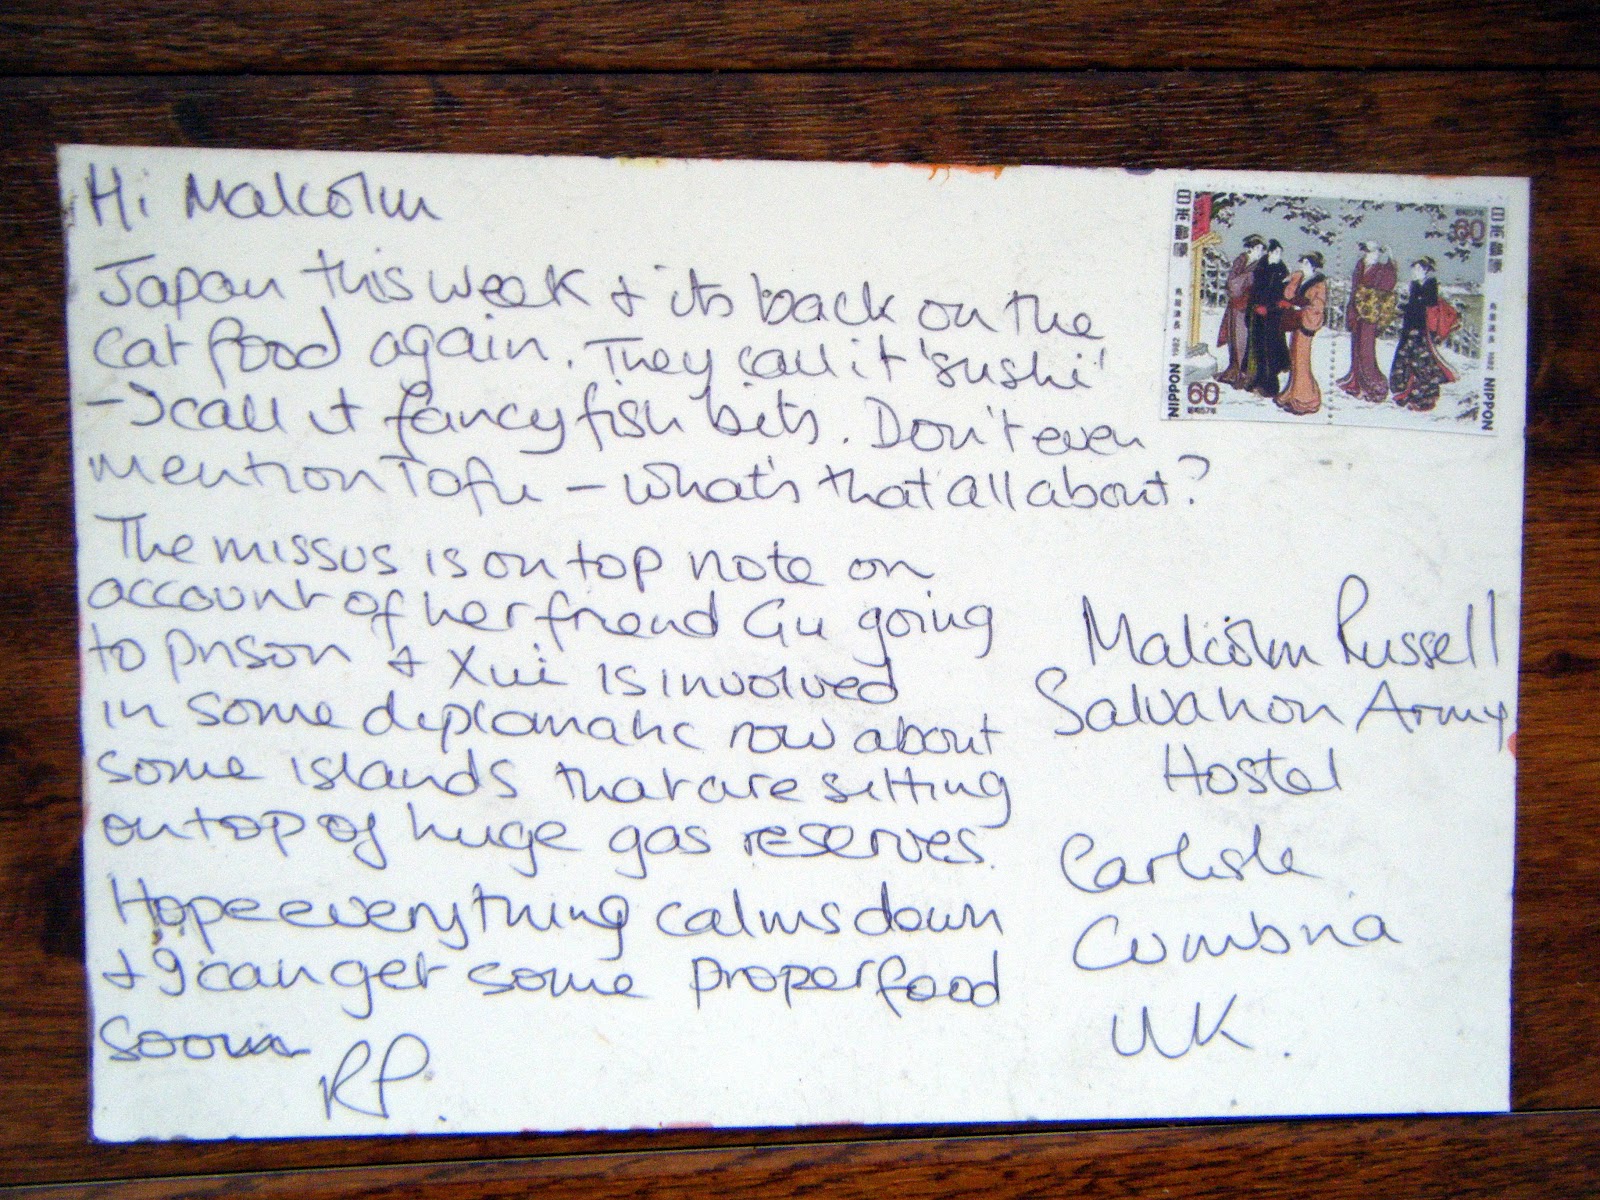 Hi Malcolm
Japan this week & its back on the
cat food again. They call it 'sushi'
- I call it fancy fish bits. Don't even
mention Tofu - what's that all about?
The missus is on top note on
account of her friend Gu going
to prison & Xui is involved
in some diplomatic row about
some islands that are sitting
on top of huge gas reserves.
Hope everything calms down
& I can get some proper food
soon
RP.
日本郵便
60
昭和57年
NIPPON 1982
鳥居清長
昭和57年
60
日本郵便
鳥居清長 1982
NIPPON
Malcolm Russell
Salvation Army
Hostel
Carlisle
Cumbria
UK.